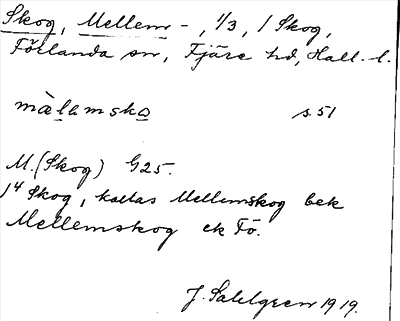 Skog, Mellem-, 1/3, / Skog,
Förlanda sn, Fjäre hd, Hall. l.
mälamsko s. 51
M. (Skog) G25.
1⁴ Skog, kallas Mellemskog bek
Mellemskog ek Fö.
J. Sahlgren 1919.